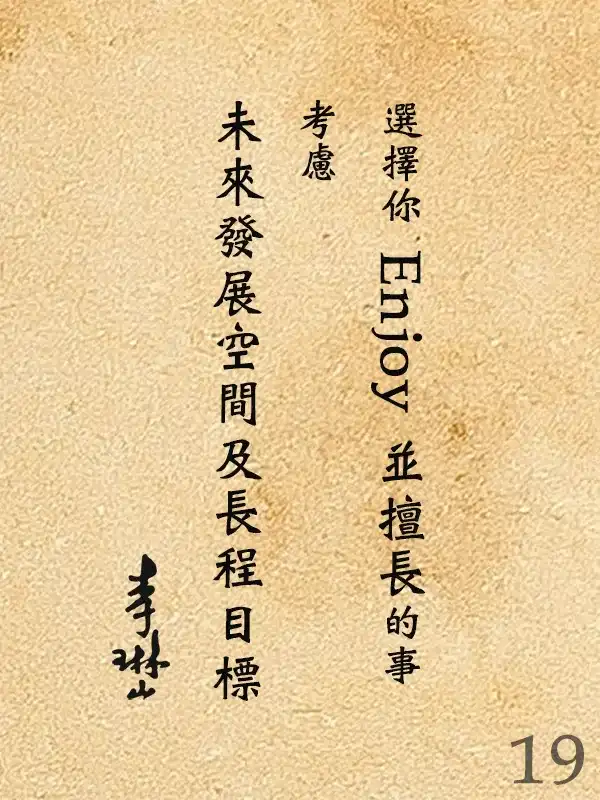 選擇你 Enjoy 並擅長的事
考慮
未來發展空間及長程目標
李琳山
19